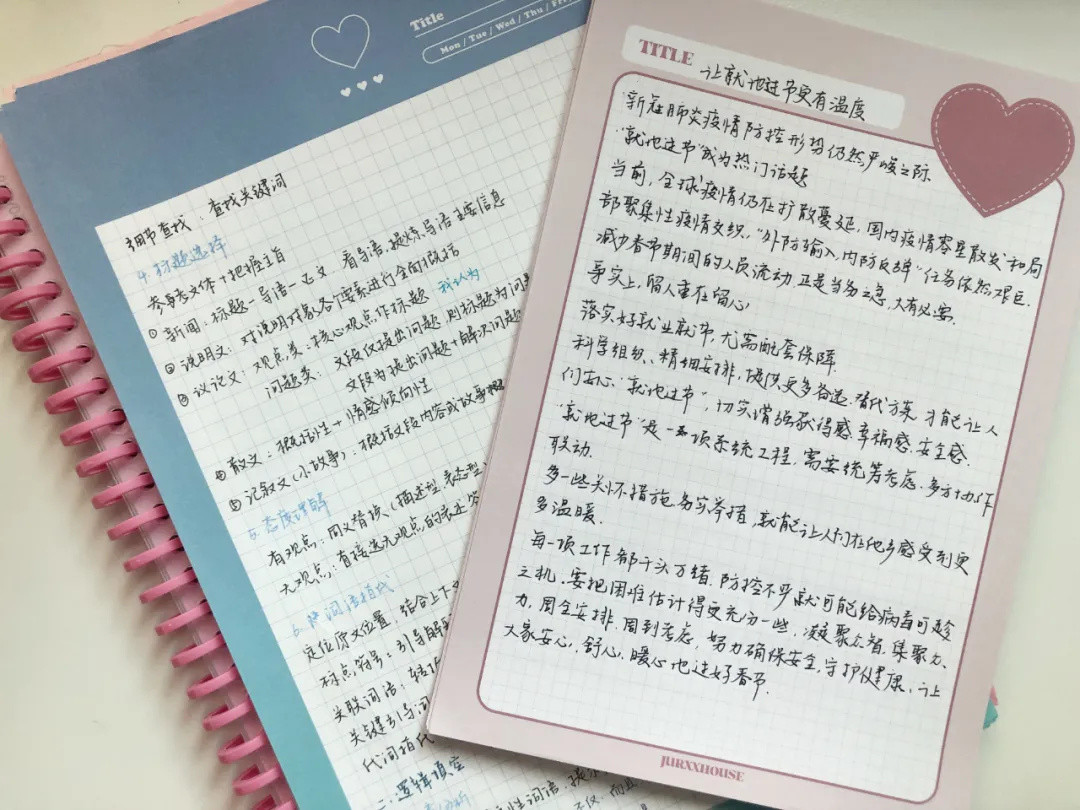 Title
Mon / Tue / Wed / Thu / Fri
细节查找：查找关键词
4.标题选择
参考文体+把握主旨
①新闻：标题-导语-正文 看导语,提炼导语主要信息
②说明文：对说明对象各个要素进行全面概括
③议论文：观点类：核心观点作标题 我认为
问题类：文段仅提出问题,则标题为问题
文段为提出问题+解决问题
④散文：概括性+情感倾向性
⑤记叙文(小故事)：概括文段内容或故事
5.态度理解
有观点：同义替换(描述型,表态型
无观点：直接选无观点的表述
6.词语指代
定位原文位置,结合上下文
标点符号：引导解释
关联词语：转折
关键引导词
代词指代
二.逻辑填空
TITLE
让就地过节更有温度
新冠肺炎疫情防控形势仍然严峻之际
"就地过节"成为热门话题
当前,全球疫情仍在扩散蔓延,国内疫情零星散发和局
部聚集性疫情交织,"外防输入,内防反弹"任务依然艰巨.
减少春节期间的人员流动,正是当务之急,大有必要.
事实上,留人重在留心
落实好就业就节,尤需配套保障
科学组织、精细安排,提供更多备选.替代方案,才能让人
们安心"就地过节",切实增强获得感.幸福感.安全感.
"就地过节"是一项系统工程,需要统筹考虑.多方协作
联动.
多一些关怀措施.务实举措,就能让人们在他乡感受到更
多温暖.
每一项工作都千头万绪.防控不乎就可能给病毒可趁
之机.要把困难估计得更充分一些,凝聚众智.集聚众
力,周全安排.周到考虑,努力确保安全,守护健康,让
大家安心,舒心,暖心地过好春节.
JURXXHOUSE